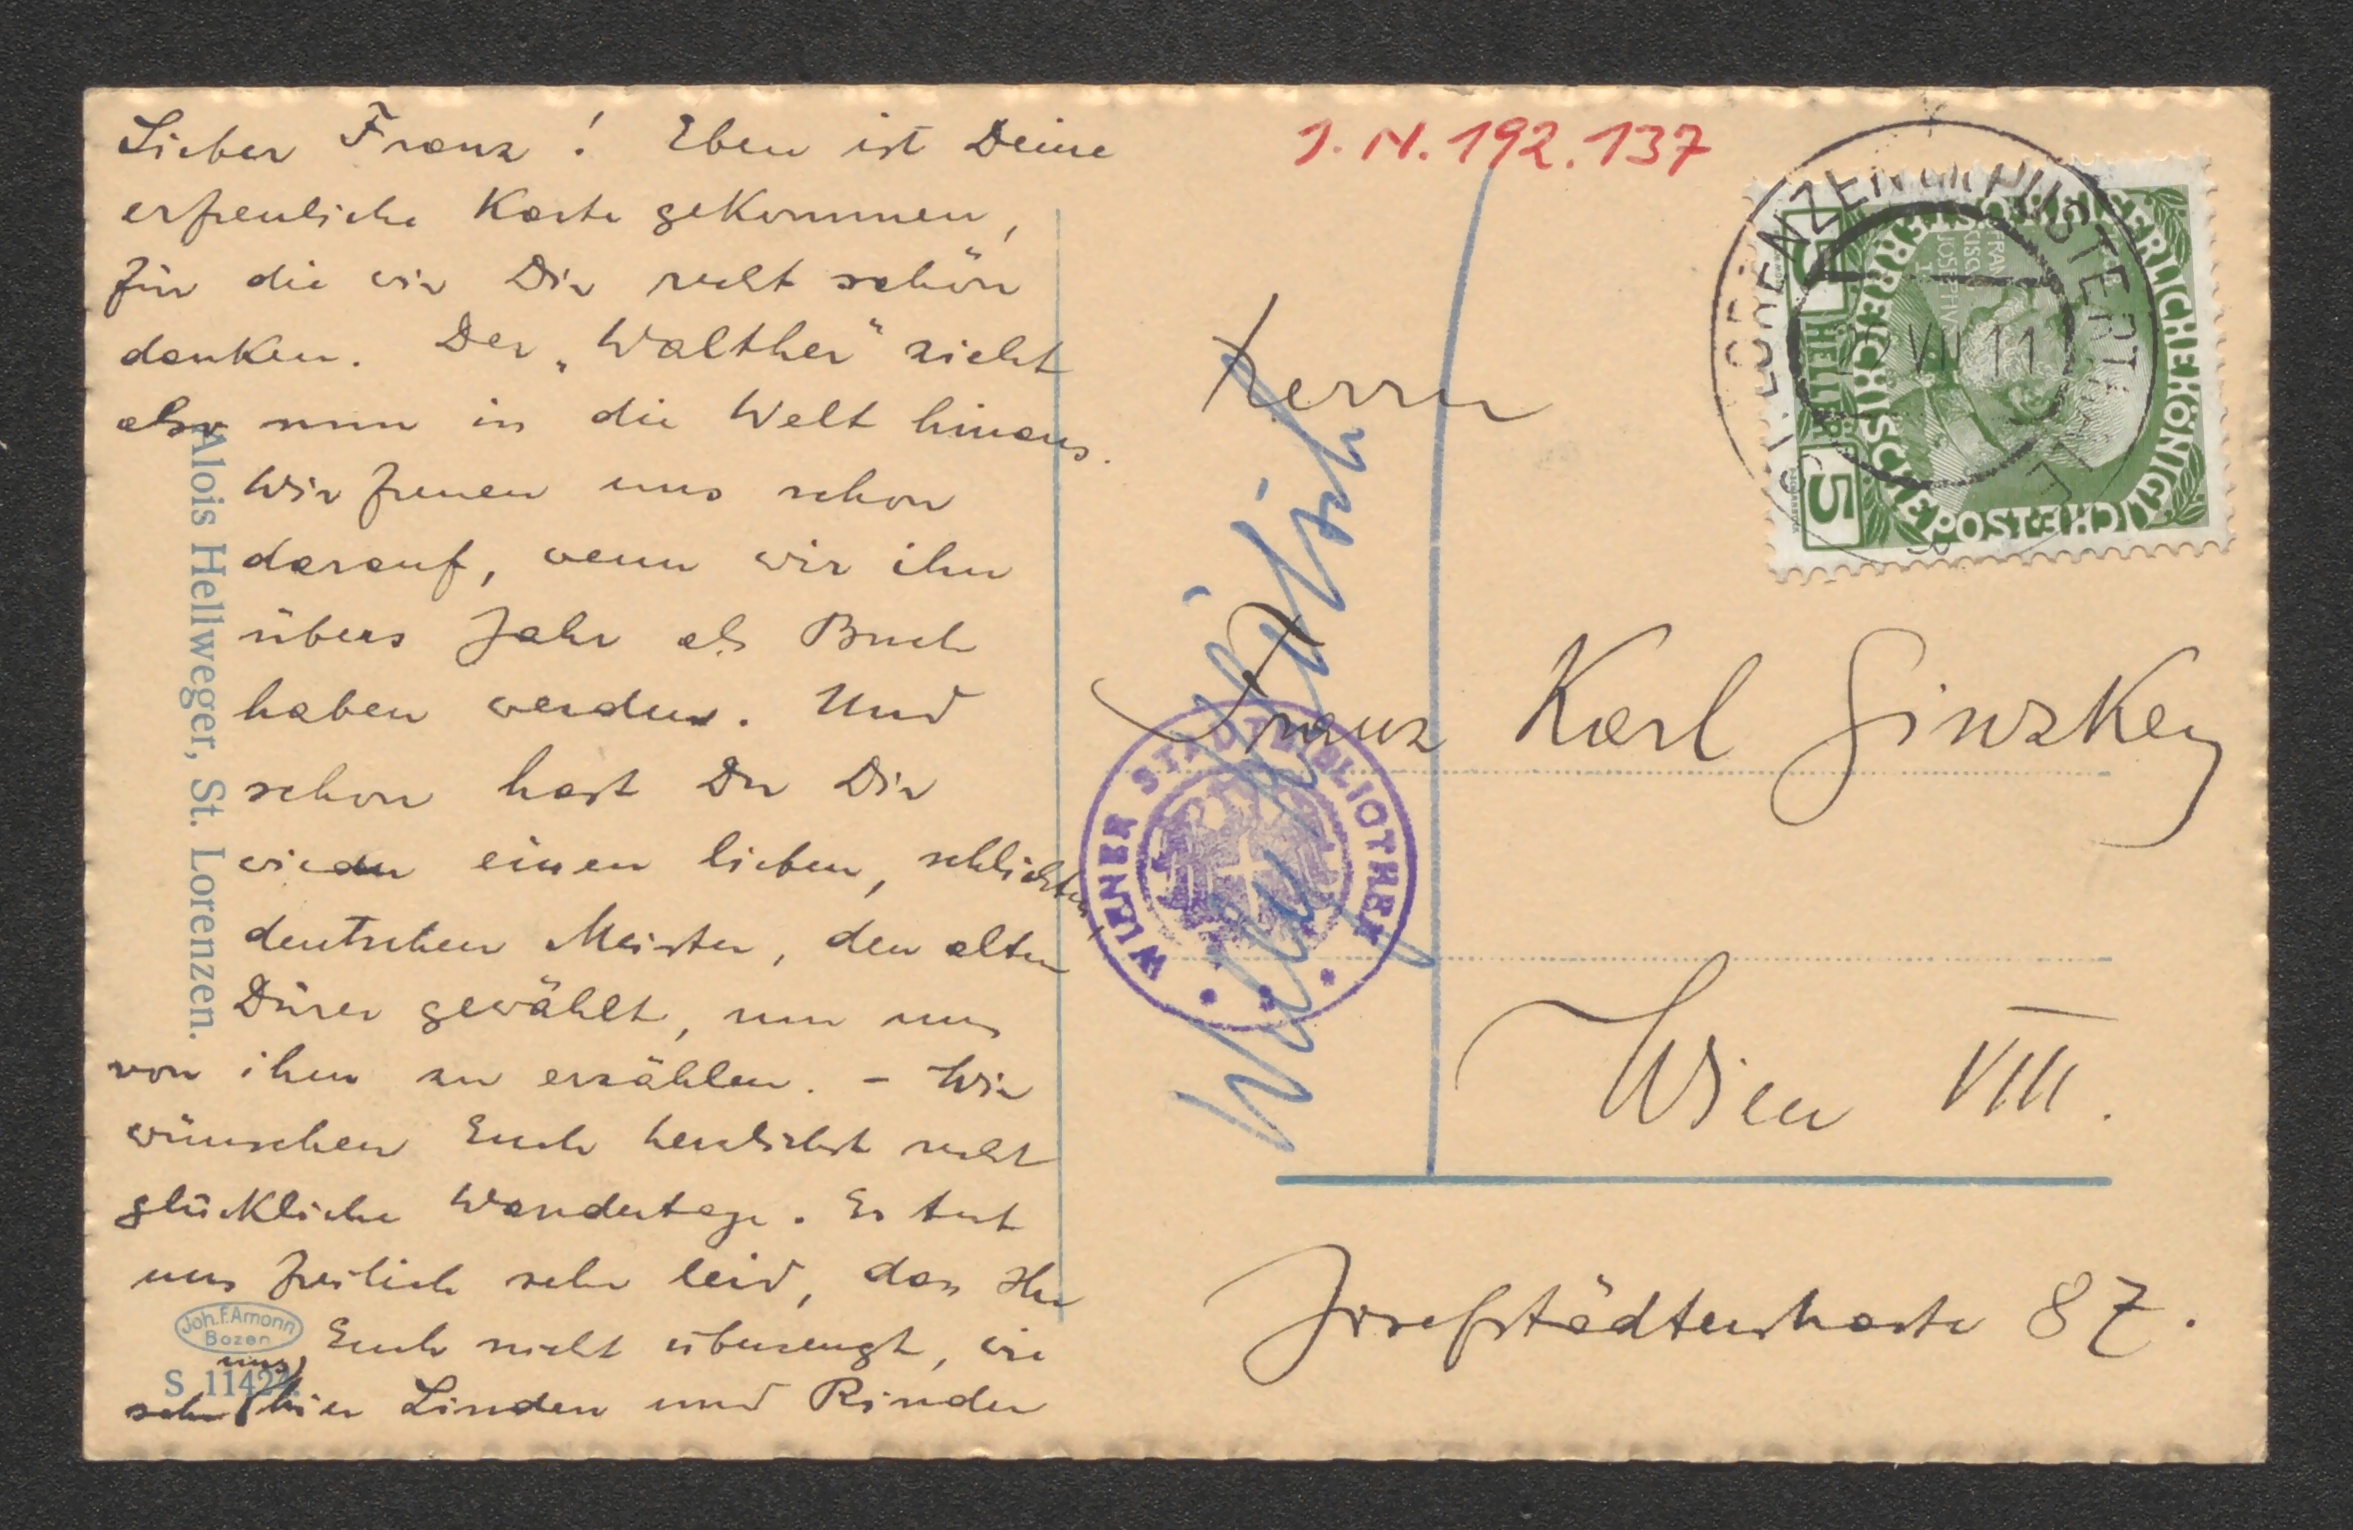 Lieber Franz! Eben ist Deine
erfreuliche Karte gekommen,
für die wir Dir recht schön
danken. Der „Walther“ zieht
also nun in die Welt hinaus.
Wir freuen uns schon
darauf, wenn wir ihn
übers Jahr als Buch
haben werden. Und
schon hast Du Dir
wieder einen lieben, schlichten,
deutschen Meister, den alten
Dürer gewählt, um uns
von ihm zu erzählen. – Wir
wünschen Euch herzlichst recht
glückliche Wandertage. Es tut
uns freilich sehr leid, dass Ihr
Euch nicht überzeugt, wie
sehr uns hier Linden und Rinder
Alois Hellweger, St. Lorenzen.
Joh. F. Amonn
Bozen
S 11424.
I. N. 192.137
Herrn
Franz Karl Ginzkey
Wien VIII.
Josefstädterstrasse 87.
WIENER STADTBIBLIOTHEK
ST. LORENZEN IM PUSTERTAL
VII 11
KAISERLICHE KÖNIGLICHE
ÖSTERREICHISCHE POST
5 HELLER 5